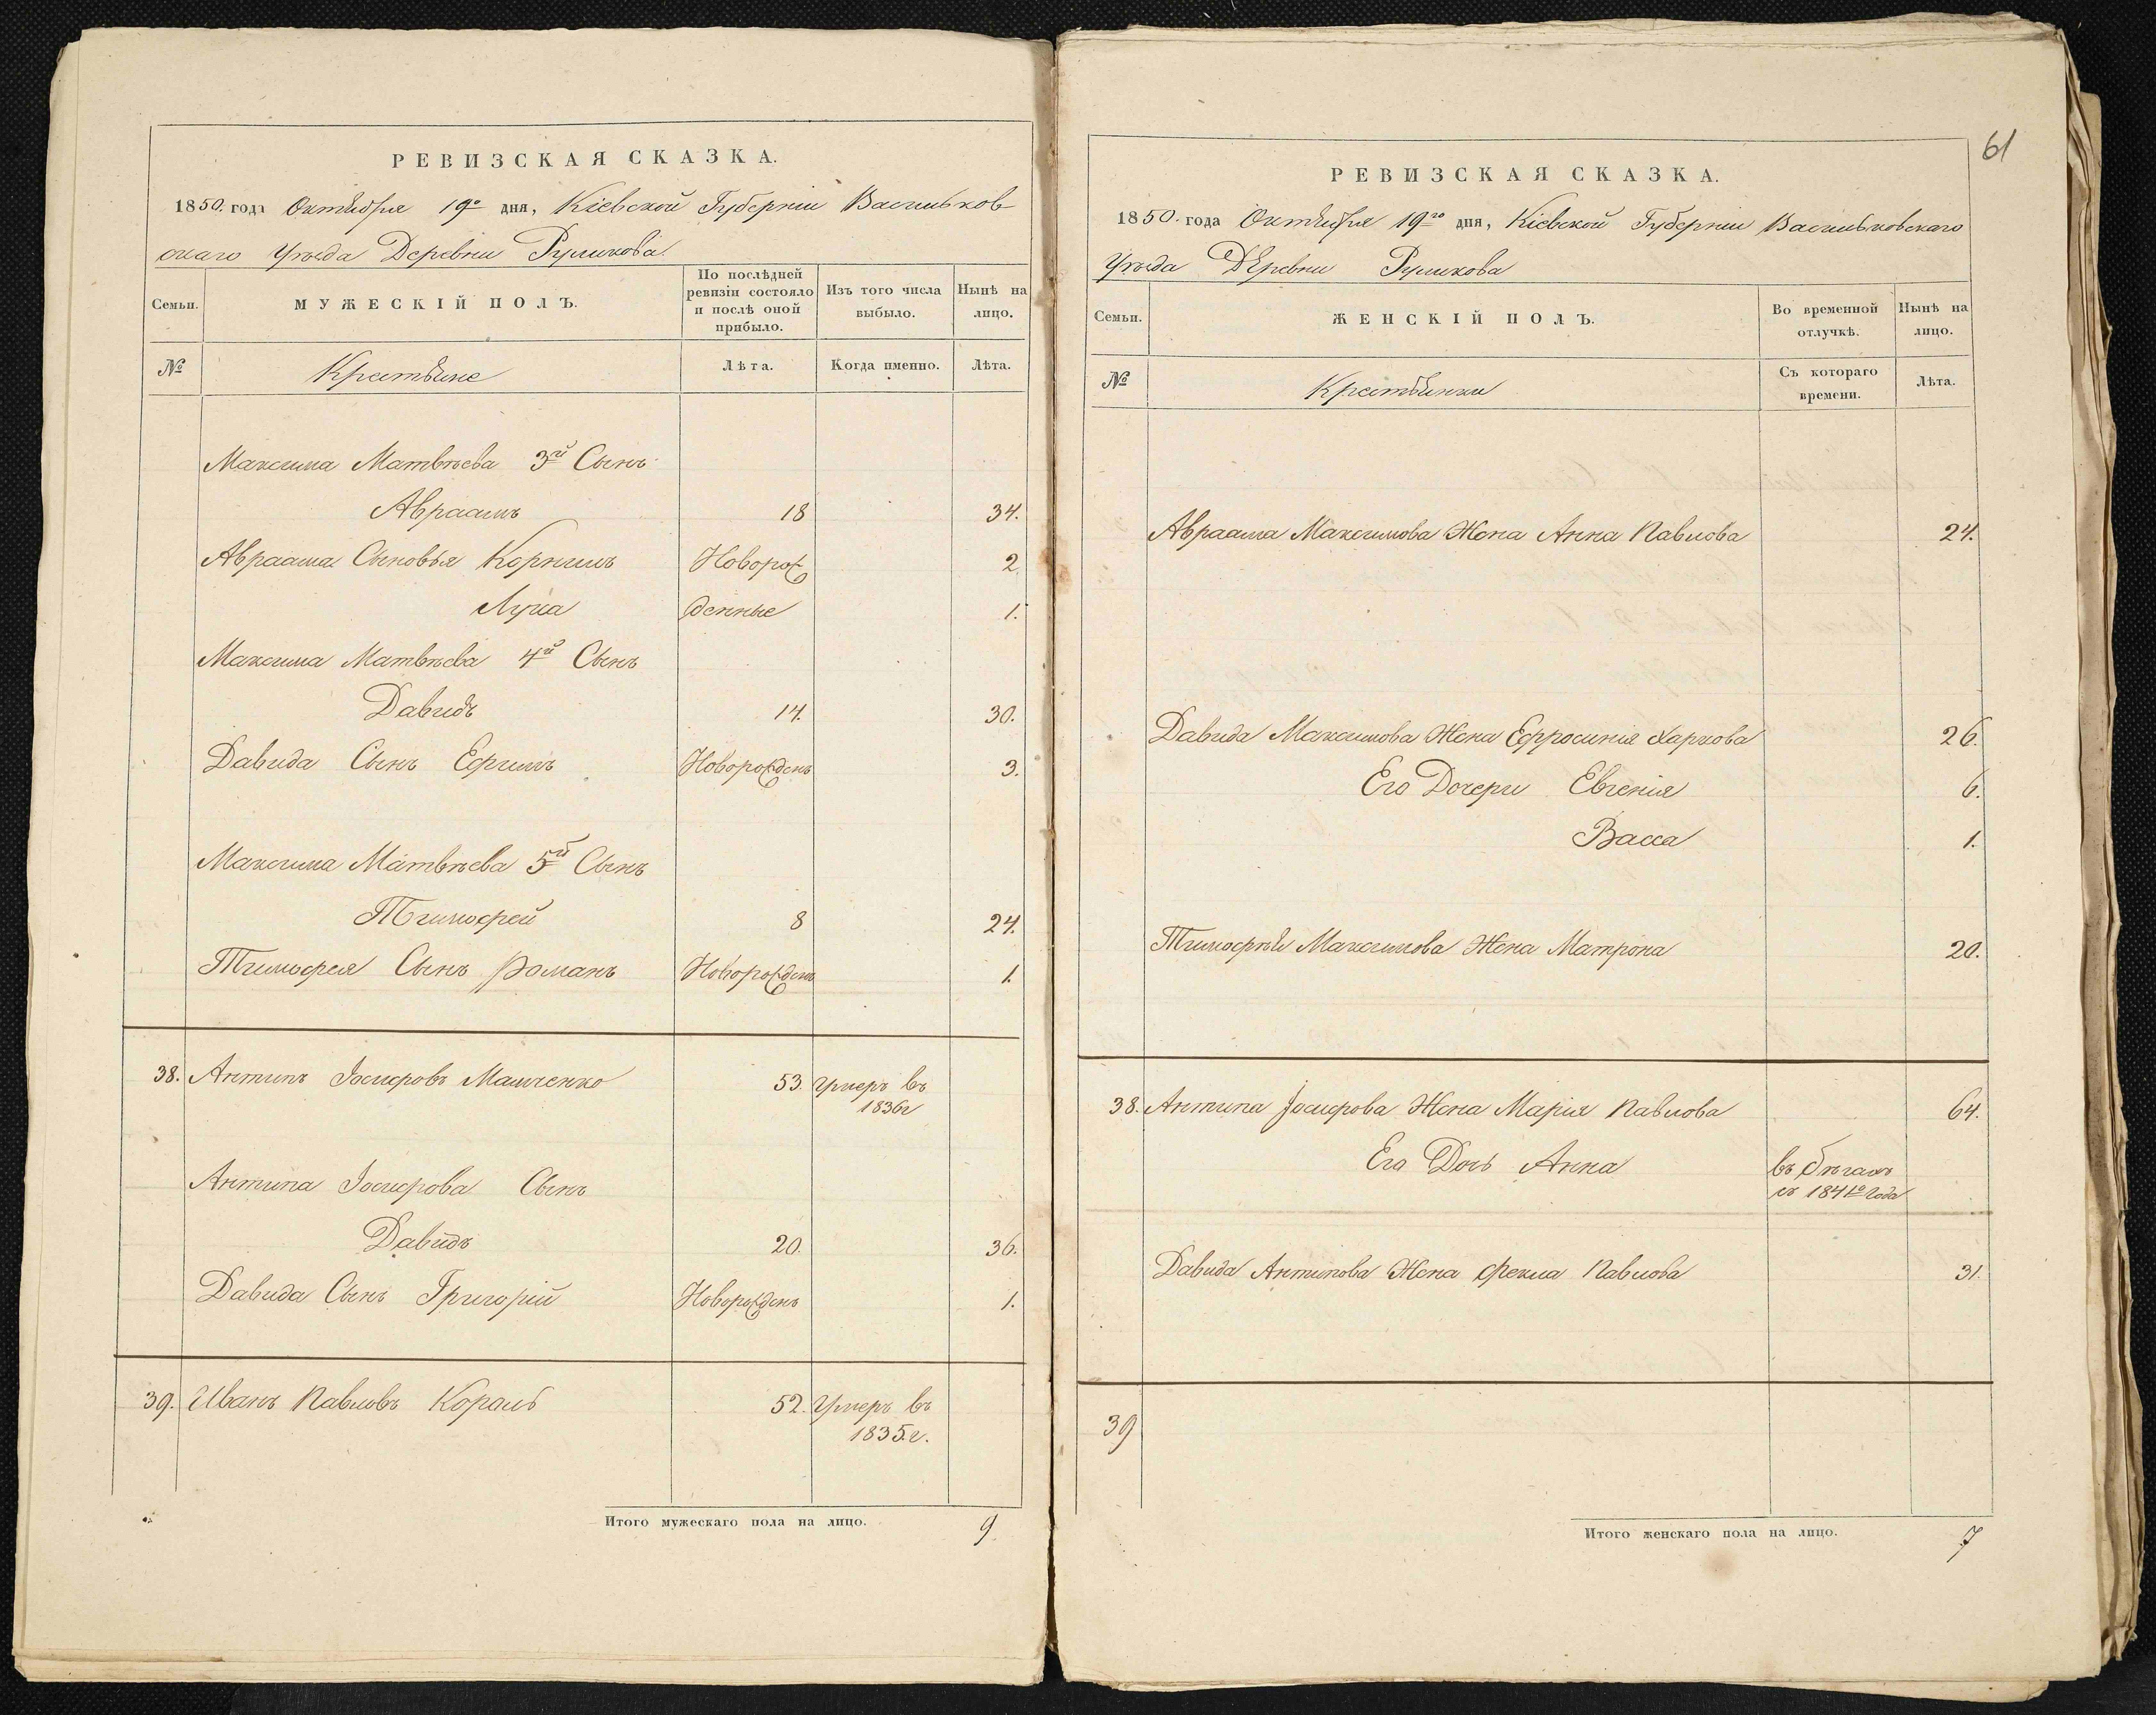 РЕВИЗСКАЯ СКАЗКА.
1850. года Октября 19го дня, Кіевской Губерніи Васильков-
скаго Уѣзда Деревни Руликова.
Семьи.
МУЖЕСКІЙ ПОЛЪ.
По послѣдней ревизіи состояло и послѣ оной прибыло.
Изъ того числа выбыло.
Нынѣ на лицо.
№
Крестьяне
Лѣта.
Когда именно.
Лѣта.
Максима Матвѣева 3й Сынъ
Авраамъ 18 34.
Авраама Сыновья Корнилъ Новорож 2
Лука денные 1.
Максима Матвѣева 4й Сынъ
Давидъ 14. 30.
Давида Сынъ Ефимъ Новорожденъ 3.
Максима Матвѣева 5й Сынъ
Тимофей 8 24.
Тимофея Сынъ Романъ Новорожденъ 1.
38. Антипъ Іосифовъ Машченко 53. умеръ въ
1836г
Антипа Іосифова Сынъ
Давидъ 20. 36.
Давида Сынъ Григорій Новорожденъ 1.
39. Иванъ Павловъ Кораль 52. Умеръ въ
1835.г.
Итого мужескаго пола на лицо. 9
61
РЕВИЗСКАЯ СКАЗКА.
1850. года Октября 19го дня, Кіевской Губерніи Васильковскаго
Уѣзда Деревни Руликова
Семьи.
ЖЕНСКІЙ ПОЛЪ.
Во временной отлучкѣ.
Нынѣ на лицо.
№
Крестьянки
Съ котораго времени.
Лѣта.
Авраама Максимова Жена Анна Павлова 24.
Давида Максимова Жена Ефросинія Харкова 26.
Его Дочери Евгенія 6.
Васса 1.
Тимофѣя Максимова Жена Матрона 20.
38. Антипа Іосифова Жена Марія Павлова 64.
Его Дочь Анна въ бѣгахъ
съ 1841го года
Давида Антипова Жена Фекла Павлова 31.
39
Итого женскаго пола на лицо. 7